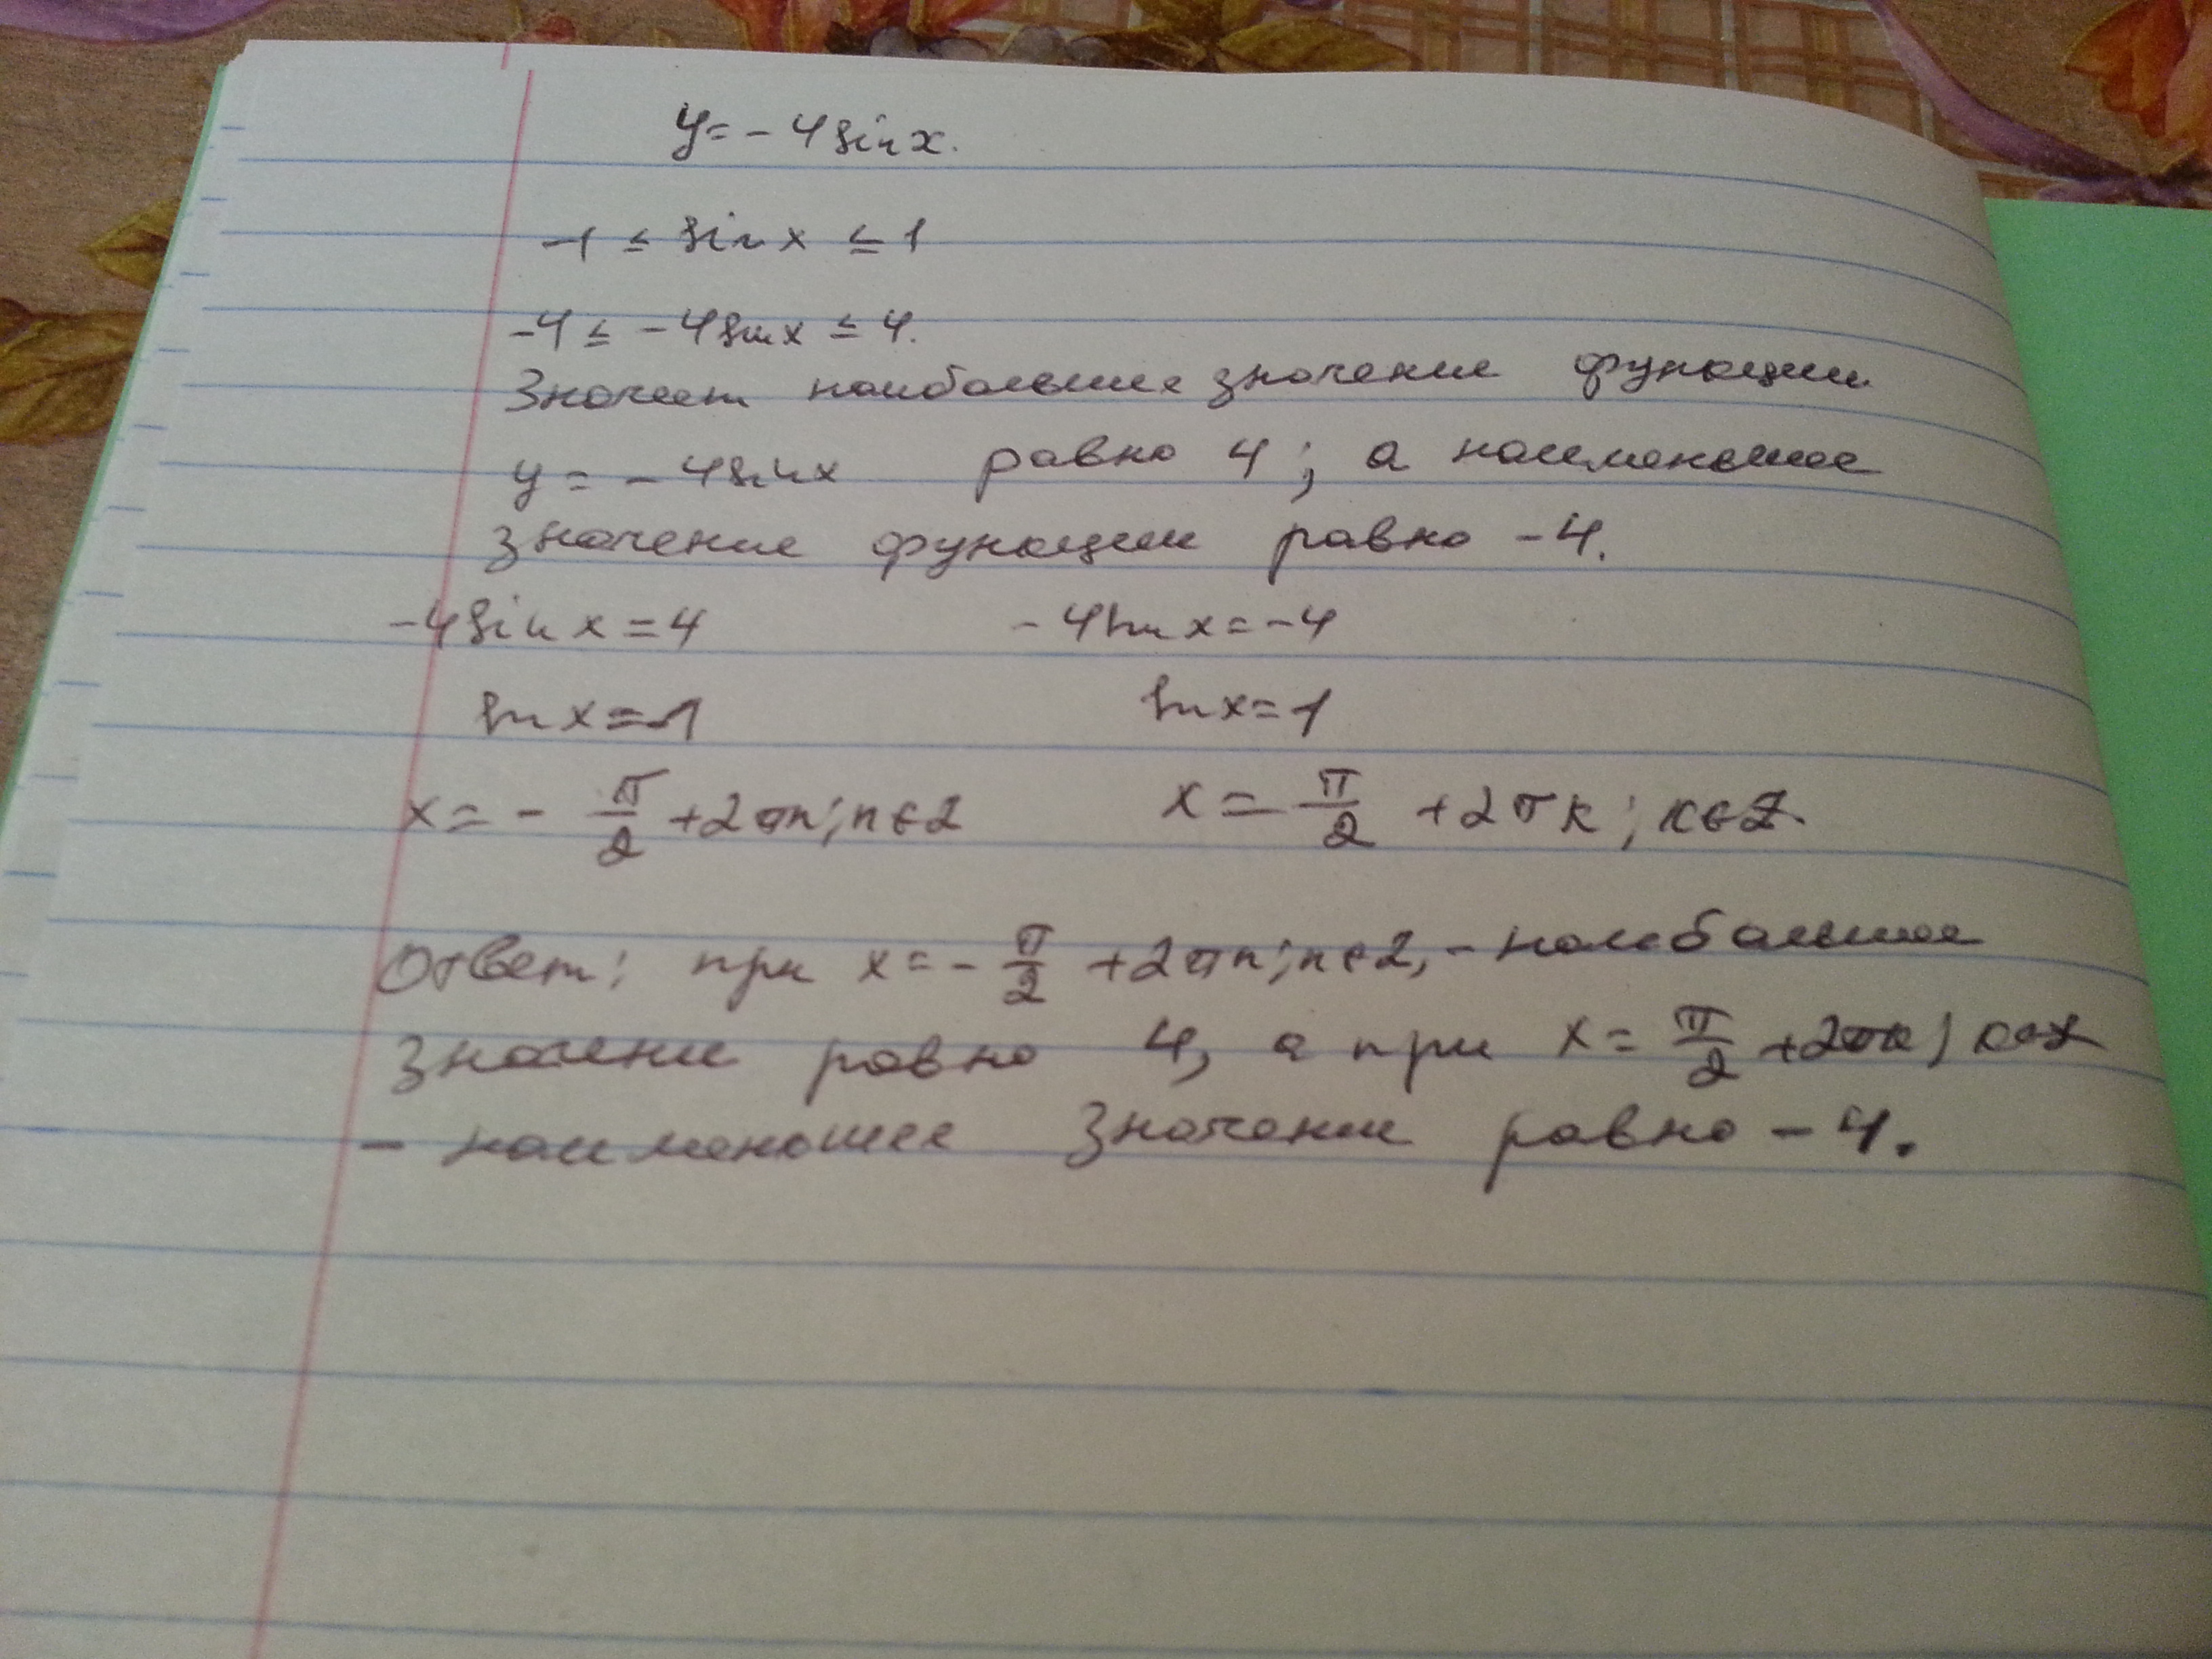 y = - 4 sin x.
-1 ≤ sin x ≤ 1
-4 ≤ -4 sin x ≤ 4.
Значит наибольшее значение функции
y = - 4 sin x равно 4; а наименьшее
значение функции равно -4.
-4 sin x = 4 -4 sin x = -4
sin x = -1 sin x = 1
x = - π/2 + 2πn; n ∈ Z x = π/2 + 2πk; k ∈ Z.
Ответ: при x = - π/2 + 2πn; n ∈ Z, - наибольшее
значение равно 4, а при x = π/2 + 2πk; k ∈ Z
- наименьшее значение равно -4.